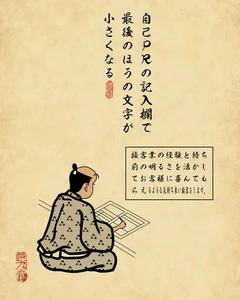 自己PRの記入欄で
最後のほうの文字が
小さくなる
接客業の経験を持ち
前の明るさを活かし
てお客様に喜んでも
らえるような気持ち良い接客をします。